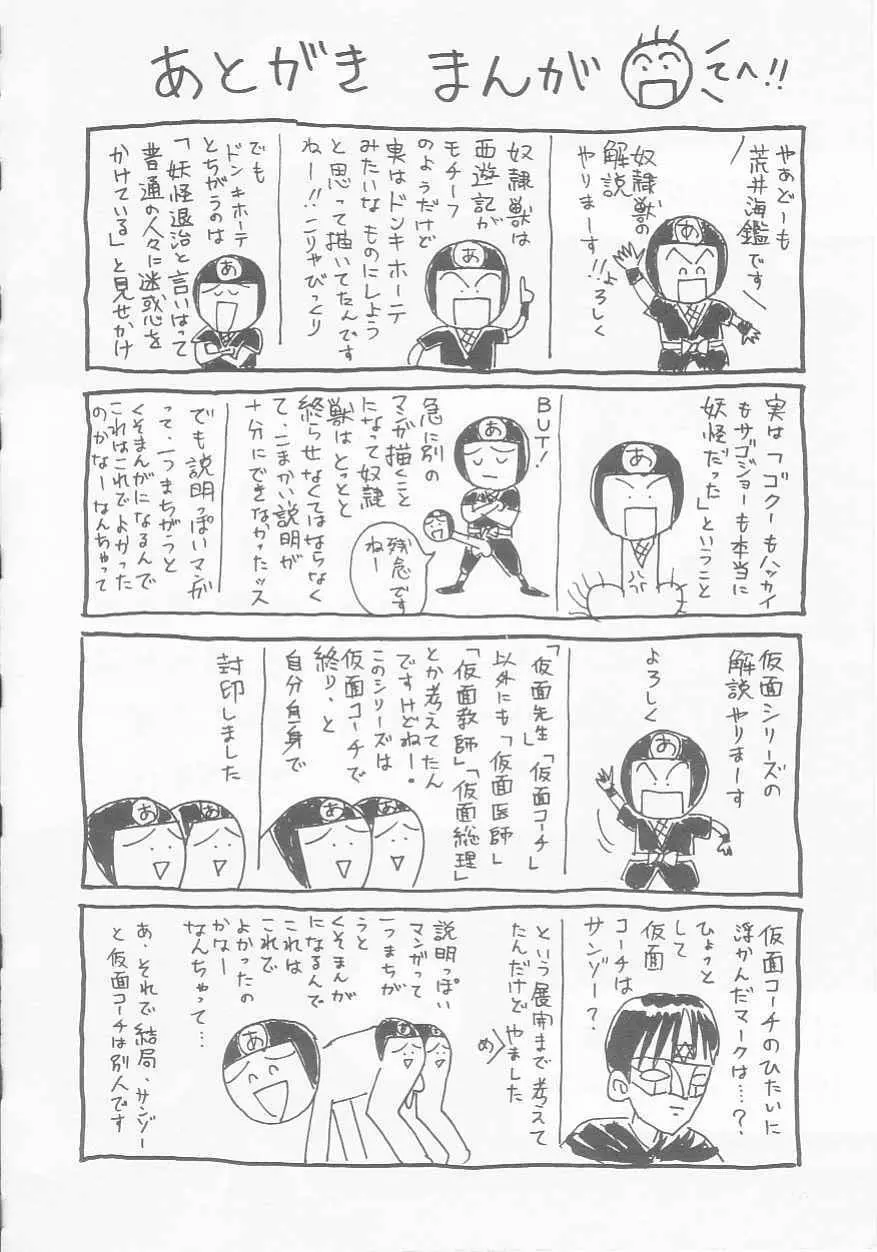 あとがき まんが
てへ!!
やあどーも
荒井海鑑です
奴隷獣の
解説
やりまーす!!
よろしく
奴隷獣は
西遊記が
モチーフ
のようだけど
実はドンキホーテ
みたいなものにしよう
と思って描いてたんです
ねー!!こりゃびっくり
でも
ドンキホーテ
とちがうのは
「妖怪退治と言いはって
普通の人々に迷惑を
かけている」と見せかけ
実は「ゴクーもハッカイ
もサゴジョーも本当に
妖怪だった」ということ
BUT!
急に別の
マンガ描くこと
になって奴隷
獣はとっとと
終らせなくてはならなく
て、こまかい説明が
十分にできなかったッス
残念です
ねー
でも説明っぽいマンガ
って、一つまちがうと
くそまんがになるんで
これはこれでよかった
のかなーなんちゃって
仮面シリーズの
解説やりまーす
よろしく
「仮面先生」「仮面コーチ」
以外にも「仮面医師」
「仮面教師」「仮面総理」
とか考えてたん
ですけどねー。
このシリーズは
仮面コーチで
終り、と
自分自身で
封印しました
仮面コーチのひたいに
浮かんだマークは…?
ひょっと
して
仮面
コーチは
サンゾー?
という展開まで考えて
たんだけどやました
め
説明っぽい
マンガって
一つまちが
うと
くそまんが
になるんで
これは
これで
よかったの
かなー
なんちゃって…
あ、それで結局、サンゾー
と仮面コーチは別人です
あ
あ
あ
あ
あ
あ
あ
あ
あ
あ
あ
あ
あ